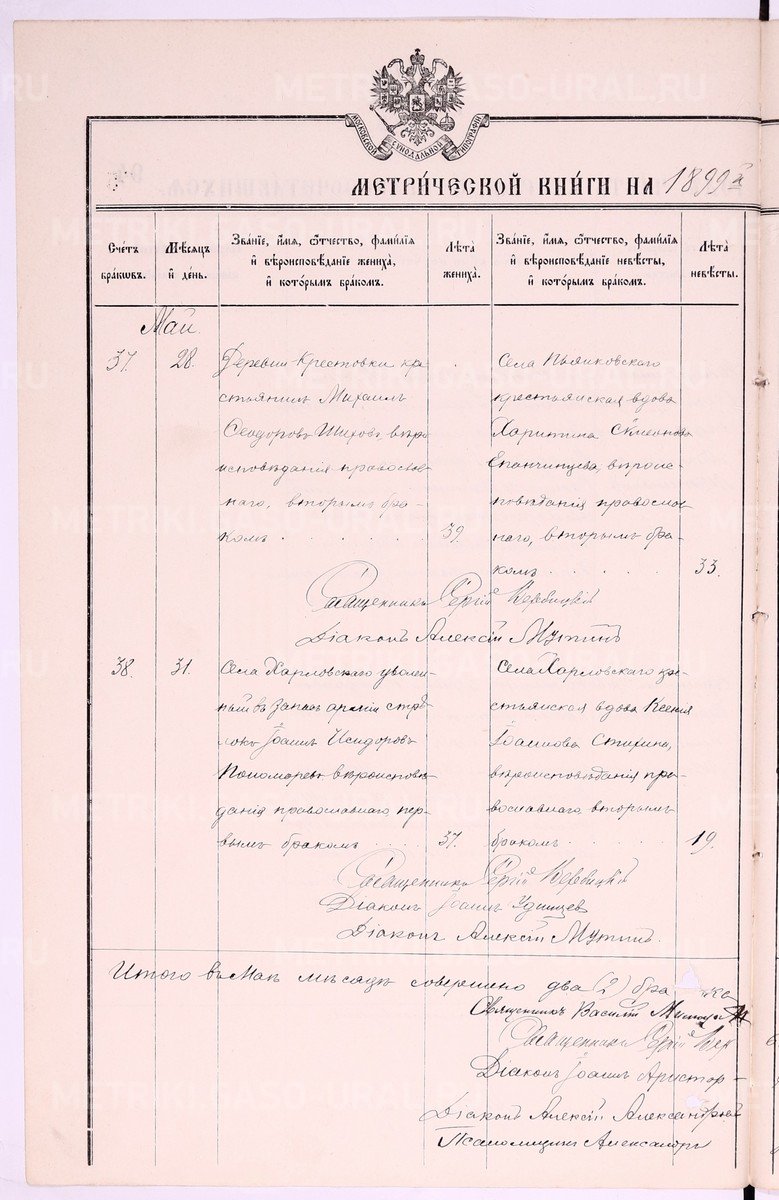 МОСКОВСКОЙ СѴНОДАЛЬНОЙ ТИПОГРАФІИ
МЕТРИ́ЧЕСКОЙ КНИ́ГИ НА 1899 г.
Сче́тъ бра́кωвъ.
Мѣ́сяцъ и де́нь.
Зва́нїе, и́мя, ѻ́тчество, фами́лїя и҆ вѣроисповѣ́данїе жениха̀, и҆ кото́рымъ бра́комъ.
Лѣта̀ жениха̀.
Зва́нїе, и́мя, ѻ́тчество, фами́лїя и҆ вѣроисповѣ́данїе невѣ́сты, и҆ кото́рымъ бра́комъ.
Лѣта̀ невѣ́сты.
Май.
37.
28.
Деревни Крестовки кре
стьянинъ Михаилъ
Ѳеодоровъ Шиховъ, вѣро
исповѣданія православ
наго, вторымъ бра-
комъ
39.
Села
крестьянская вдова
Харитина Сѷмеонова
Епанчинцева, вѣроис-
повѣданія православ
наго, вторымъ бра-
комъ
33.
Священникъ Сергій Вербицкій
Діаконъ Алексій Мутинъ
38.
31.
Села Харловскаго уволен
ный въ запасъ арміи стрѣ
локъ Іоаннъ Исидоровъ
Пономаревъ, вѣроисповѣ
данія православнаго, пер
вымъ бракомъ
37.
Села Харловскаго кре
стьянская вдова Ксенія
Іоаннова Стихина,
вѣроисповѣданія пра-
вославнаго, вторымъ
бракомъ
19.
Священникъ Сергій Вербицкій
Діаконъ Іоаннъ Удинцев
Діаконъ Алексій Мутинъ.
Итого въ Маѣ мѣсяцѣ совершено два (2) бра
Священникъ Василій
Священникъ Сергій Вер
Діаконъ Іоаннъ
Діаконъ Алексій
Псаломщикъ Александръ